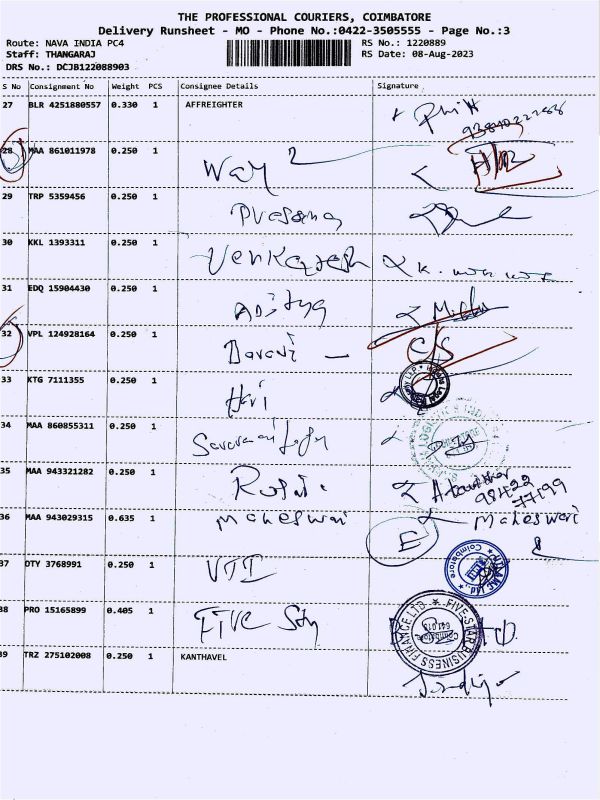 THE PROFESSIONAL COURIERS, COIMBATORE
Delivery Runsheet - MO - Phone No.:0422-3505555 - Page No.:3
Route: NAVA INDIA PC4 RS No.: 1220889
Staff: THANGARAJ RS Date: 08-Aug-2023
DRS No.: DCJB122088903
S No Consignment No Weight PCS Consignee Details Signature
27 BLR 4251880557 0.330 1 AFFREIGHTER
28 MAA 861011978 0.250 1
29 TRP 5359456 0.250 1 Prasanna
30 KKL 1393311 0.250 1 Venkatesh
31 EDQ 15904430 0.250 1 Aditya
32 VPL 124928164 0.250 1
33 KTG 7111355 0.250 1 Hari
34 MAA 860855311 0.250 1
35 MAA 943321282 0.250 1
98422
77199
36 MAA 943029315 0.635 1 Maheswari Maheswari
E
37 OTY 3768991 0.250 1 VTI
Coimbatore
38 PRO 15165899 0.405 1 Five Star
FIVE STAR BUSINESS FINANCE LTD.
Coimbatore
39 TRZ 275102008 0.250 1 KANTHAVEL